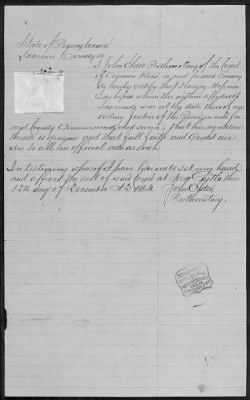 State of Pennsylvania
Lawrence County ss
I John Elder Prothonotary of the Court
of Common Pleas in and for said County
do hereby certify that
Esq before whom the within affidavit
was made was at the date thereof an
acting Justice of the Peace in and for
said County Commissioned and sworn, that his signature
thereto is genuine and that full faith and Credit are
due to all his official acts as such.
In testimony whereof I have hereunto set my hand
and affixed the seal of said Court at New Castle this
12th day of December AD 1864
John Elder
Prothonotary.